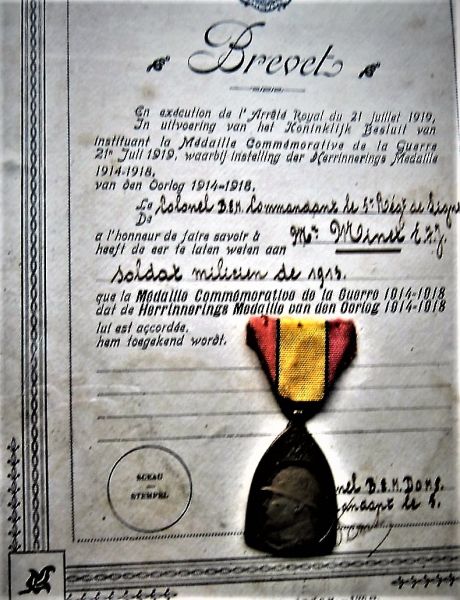 Brevet
En exécution de l'Arrêté Royal du 21 juillet 1919,
In uitvoering van het Koninklijk Besluit van
instituant la Médaille Commémorative de la Guerre
21n Juli 1919, waarbij instelling der Herrinnerings Medaille
1914-1918,
van den Oorlog 1914-1918,
Le Colonel B.E.M. Commandant le 5e Régt de Ligne
De
a l'honneur de faire savoir à Mr.
heeft de eer te laten weten aan
soldat milicien de 1913.
que la Médaille Commémorative de la Guerre 1914-1918
dat de Herrinnerings Medaille van den Oorlog 1914-1918
lui est accordée.
hem toegekend wordt.
SCEAU
STEMPEL
nel B.E.M.
le 5.